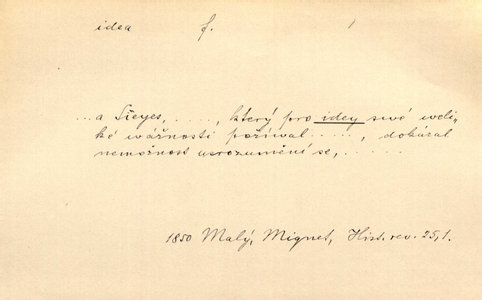 idea f. 1
... a Sieyes, . . . . ., který pro idey swé weli-
ké wážnosti požíwal . . . . . ., dokázal
nemožnost usrozumění se, . . . . . .
1850 Malý, Mignet, Hist. rev. 25, 1.